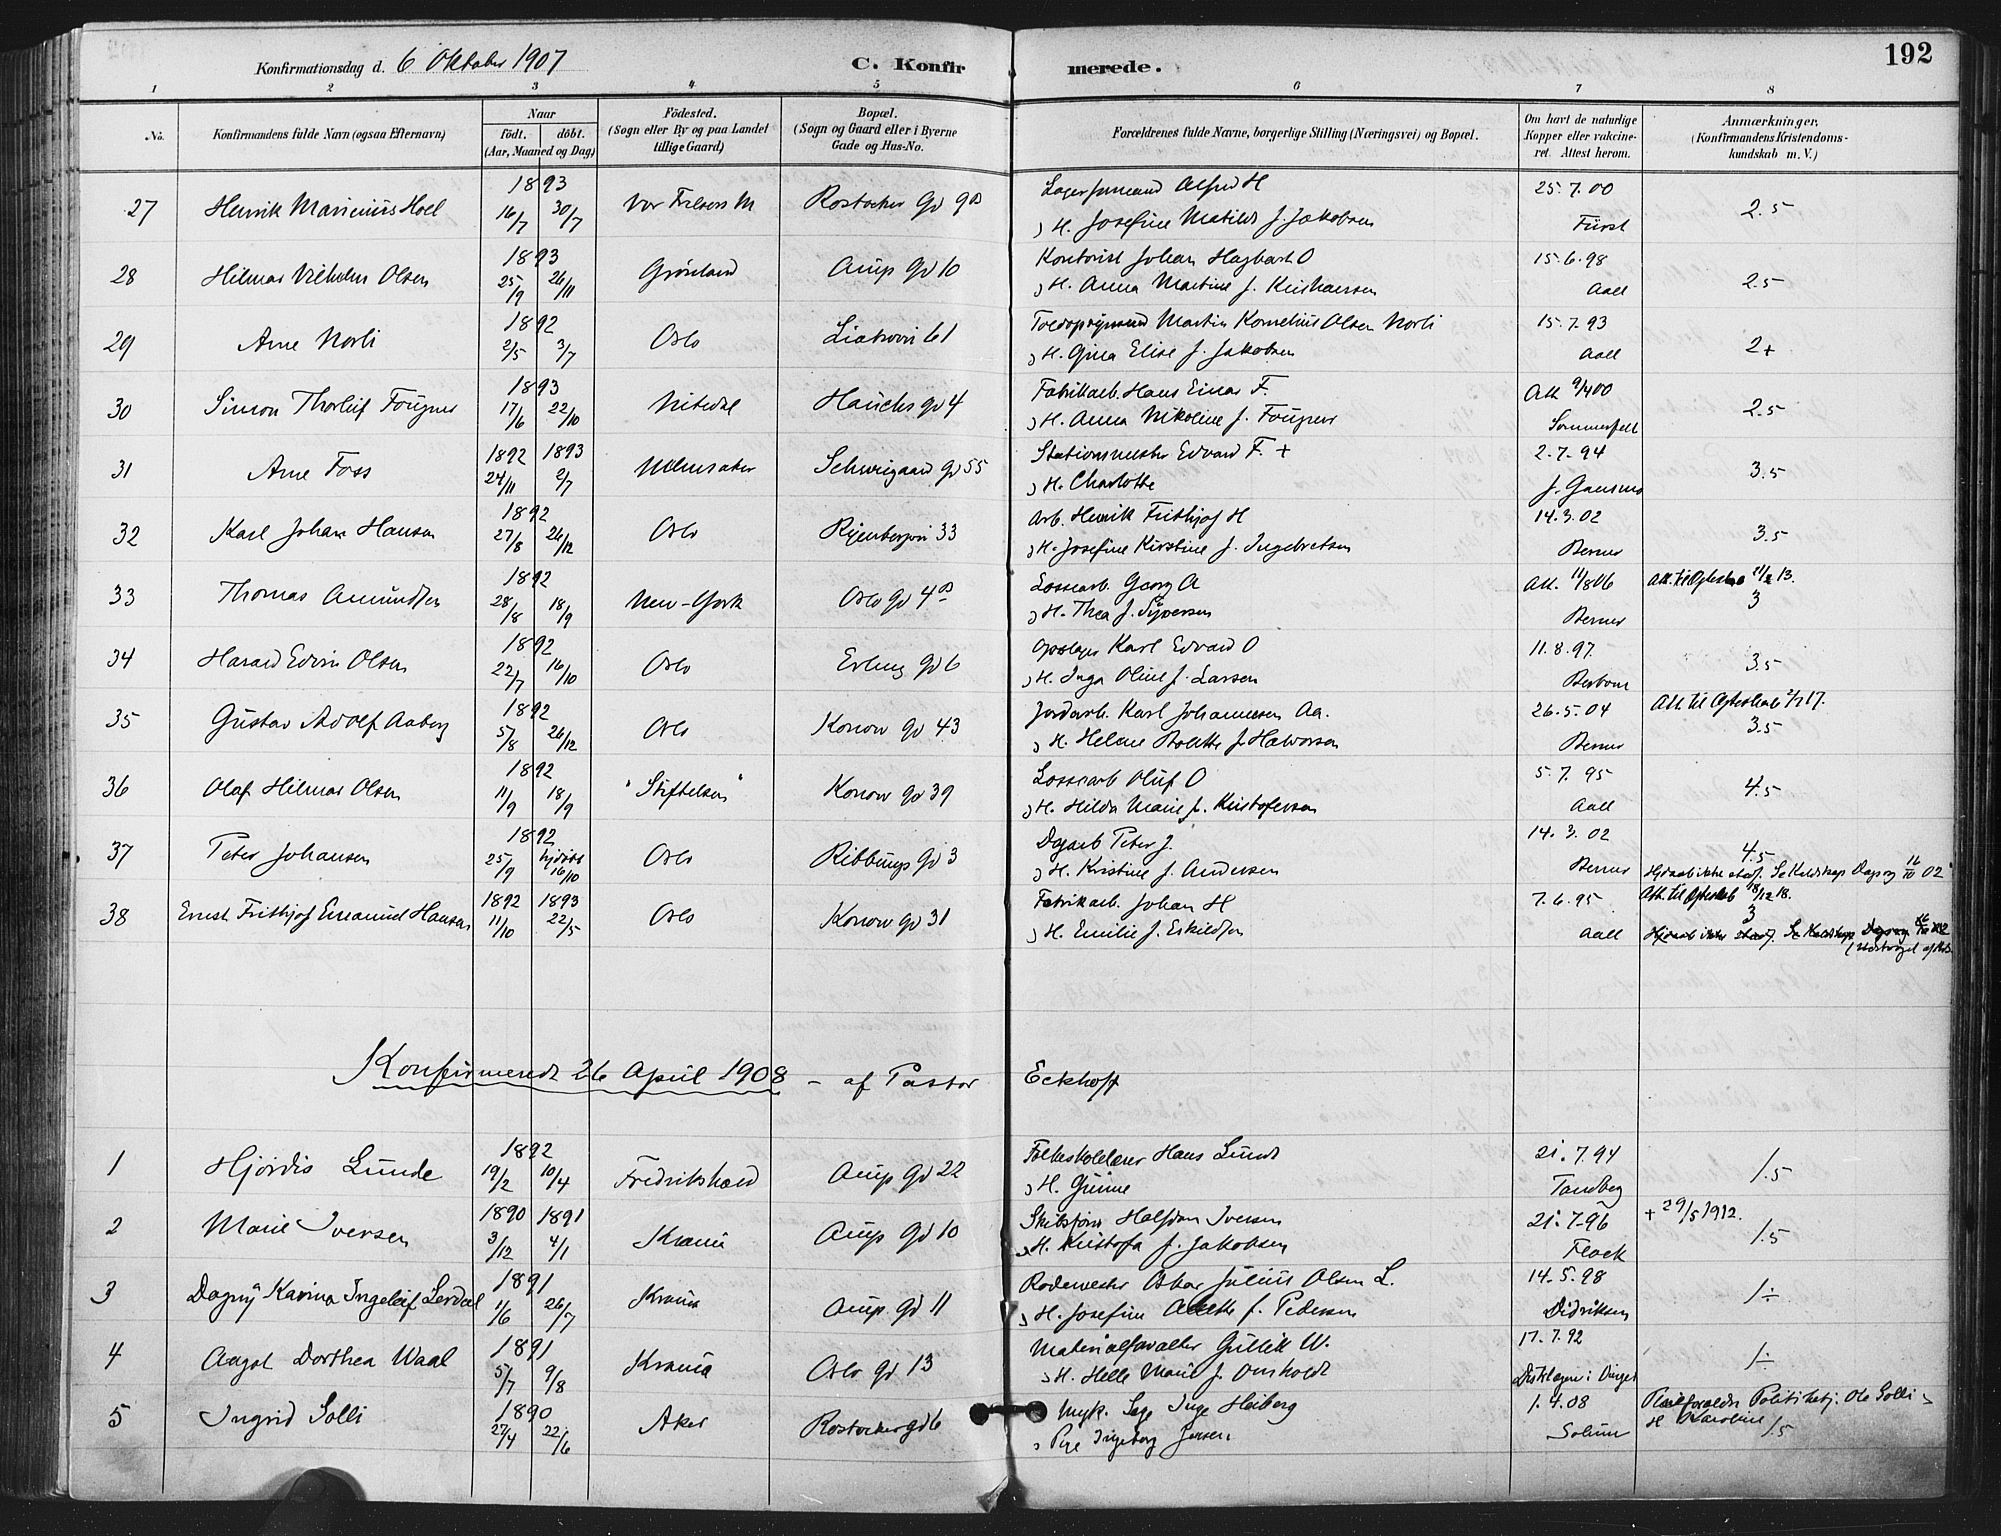 192
Konfirmationsdag d. 6 Oktober 1907
C. Konfirmerede.
1 2 3 4 5 6 7 8
No.
Konfirmandens fulde Navn (ogsaa Efternavn)
Naar
födt. döbt.
(Aar, Maaned og Dag)
Födested.
(Sogn eller By og paa Landet
tillige Gaard)
Bopæl.
(Sogn og Gaard eller i Byerne
Gade og Hus-No.
Forældrenes fulde Navne, borgerlige Stilling (Næringsvei) og Bopæl.
Om havt de naturlige
Kopper eller vakcine-
ret. Attest herom.
Anmærkninger.
(Konfirmandens Kristendoms-
kundskab m. V.)
27 Henrik Marinius Hoel 1893 16/7 30/7 Vor Frelsers M Rostocker Gd 9B Alfred H 25.7.00
H. Josefine Matilde f. Jakobsen Fürst 2.5
28 Hilmar Vilhelm Olsen 1893 25/9 26/11 Grönland Arups Gd 10 Kontorist Johan Hagbart O 15.6.98
H. Anna Martine f. Kristiansen Aall 2.5
29 Arne Norli 1892 2/5 3/7 Oslo Liabrovei 61 Martin Kornelius Olsen Norli 15.7.93
H. Gina Elise f. Jakobsen Aall 2+
30 Simon Thorleif Fougner 1893 17/6 22/10 Nitedal Hauchs Gd 4 Fabrikarb. Hans Einar F. Att 9/4 00
H. Anna Nikoline f. Fougner Sommerfelt 2.5
31 Arne Foss 1892 24/11 1893 2/7 Ullensaker Schweigaard Gd 55 Stationsmester Edvard F. + 2.7.94
H. Charlotte 3.5
32 Karl Johan Hansen 1892 27/8 26/12 Oslo Ryenbergvei 33 Arb. Henrik Frithjof H 14.3.02
H. Josefine Kirstine f. Ingebretsen Berner 3.5
33 Thomas Amundsen 1892 28/8 18/9 New-York Oslo Gd 4B Lossearb. Georg A Att. 11/8 06
Att. til Ægteskab 21/2 13.
H. Thea f. Syversen Berner 3
34 Harald Edvin Olsen 1892 22/7 16/10 Oslo Erling Gd 6 Karl Edvard O 11.8.97
H. Inga Oline f. Larsen 3.5
35 Gustav Adolf Aaberg 1892 5/8 26/12 Oslo Konow Gd 43 Jordarb. Karl Johannesen Aa. 26.5.04
H. Helene Bolette f. Halvorsen Berner 3.5
36 Olaf Hilmar Olsen 1892 11/9 18/9 "Stiftelsen" Konow Gd 39 Lossearb Oluf O 5.7.95
H. Hilda Marie f. Kristofersen Aall 4.5
37 Peter Johansen 1892 25/9 hjdöbt 16/10 Oslo Ribbungs Gd 3 Dagarb Peter J. 14.3.02
H. Kristine f. Andersen Berner 4.5
38 Ernst Frithjof Emanuel Hansen 1892 11/10 1893 22/5 Oslo Konow Gd 31 Fabrikarb. Johan H 7.6.95
Att. til Ægteskab 18/12 18.
H. Emilie f. Eskildsen Aall 3
Konfirmerede 26 April 1908 – af Pastor Eckhoff
1 Hjördis Lunde 1892 19/2 10/4 Fredrikshald Arups Gd 22 Folkeskolelærer Hans Lunde 21.7.94
H. Gunne Tandberg 1.5
2 Marie Iversen 1890 3/12 1891 4/1 Krania Arups Gd 10 Halfdan Iversen 21.7.96 + 29/5 1912.
H. Kristofa f. Jakobsen Flock 1.5
3 Dagny Karina Ingeleif Lerdal 1891 11/6 26/7 Krania Arups Gd 11 Rodemester Oskar Julius Olsen L. 14.5.98
H. Josefine f. Pedersen Didriksen 1÷
4 Aagot Dorthea Waal 1891 5/7 9/8 Krania Oslo Gd 13 Materialforvalter Gullik W. 17.7.92
H. Helle Marie f. Omholdt 1÷
5 Ingrid Solli 1890 27/4 22/6 Aker Rostocker gd 6 Inge Heiberg 1.4.08 Pleieforældre Politibetj. Ole Solli
Pige Ingeborg Jensen Solum H Karoline 1.5